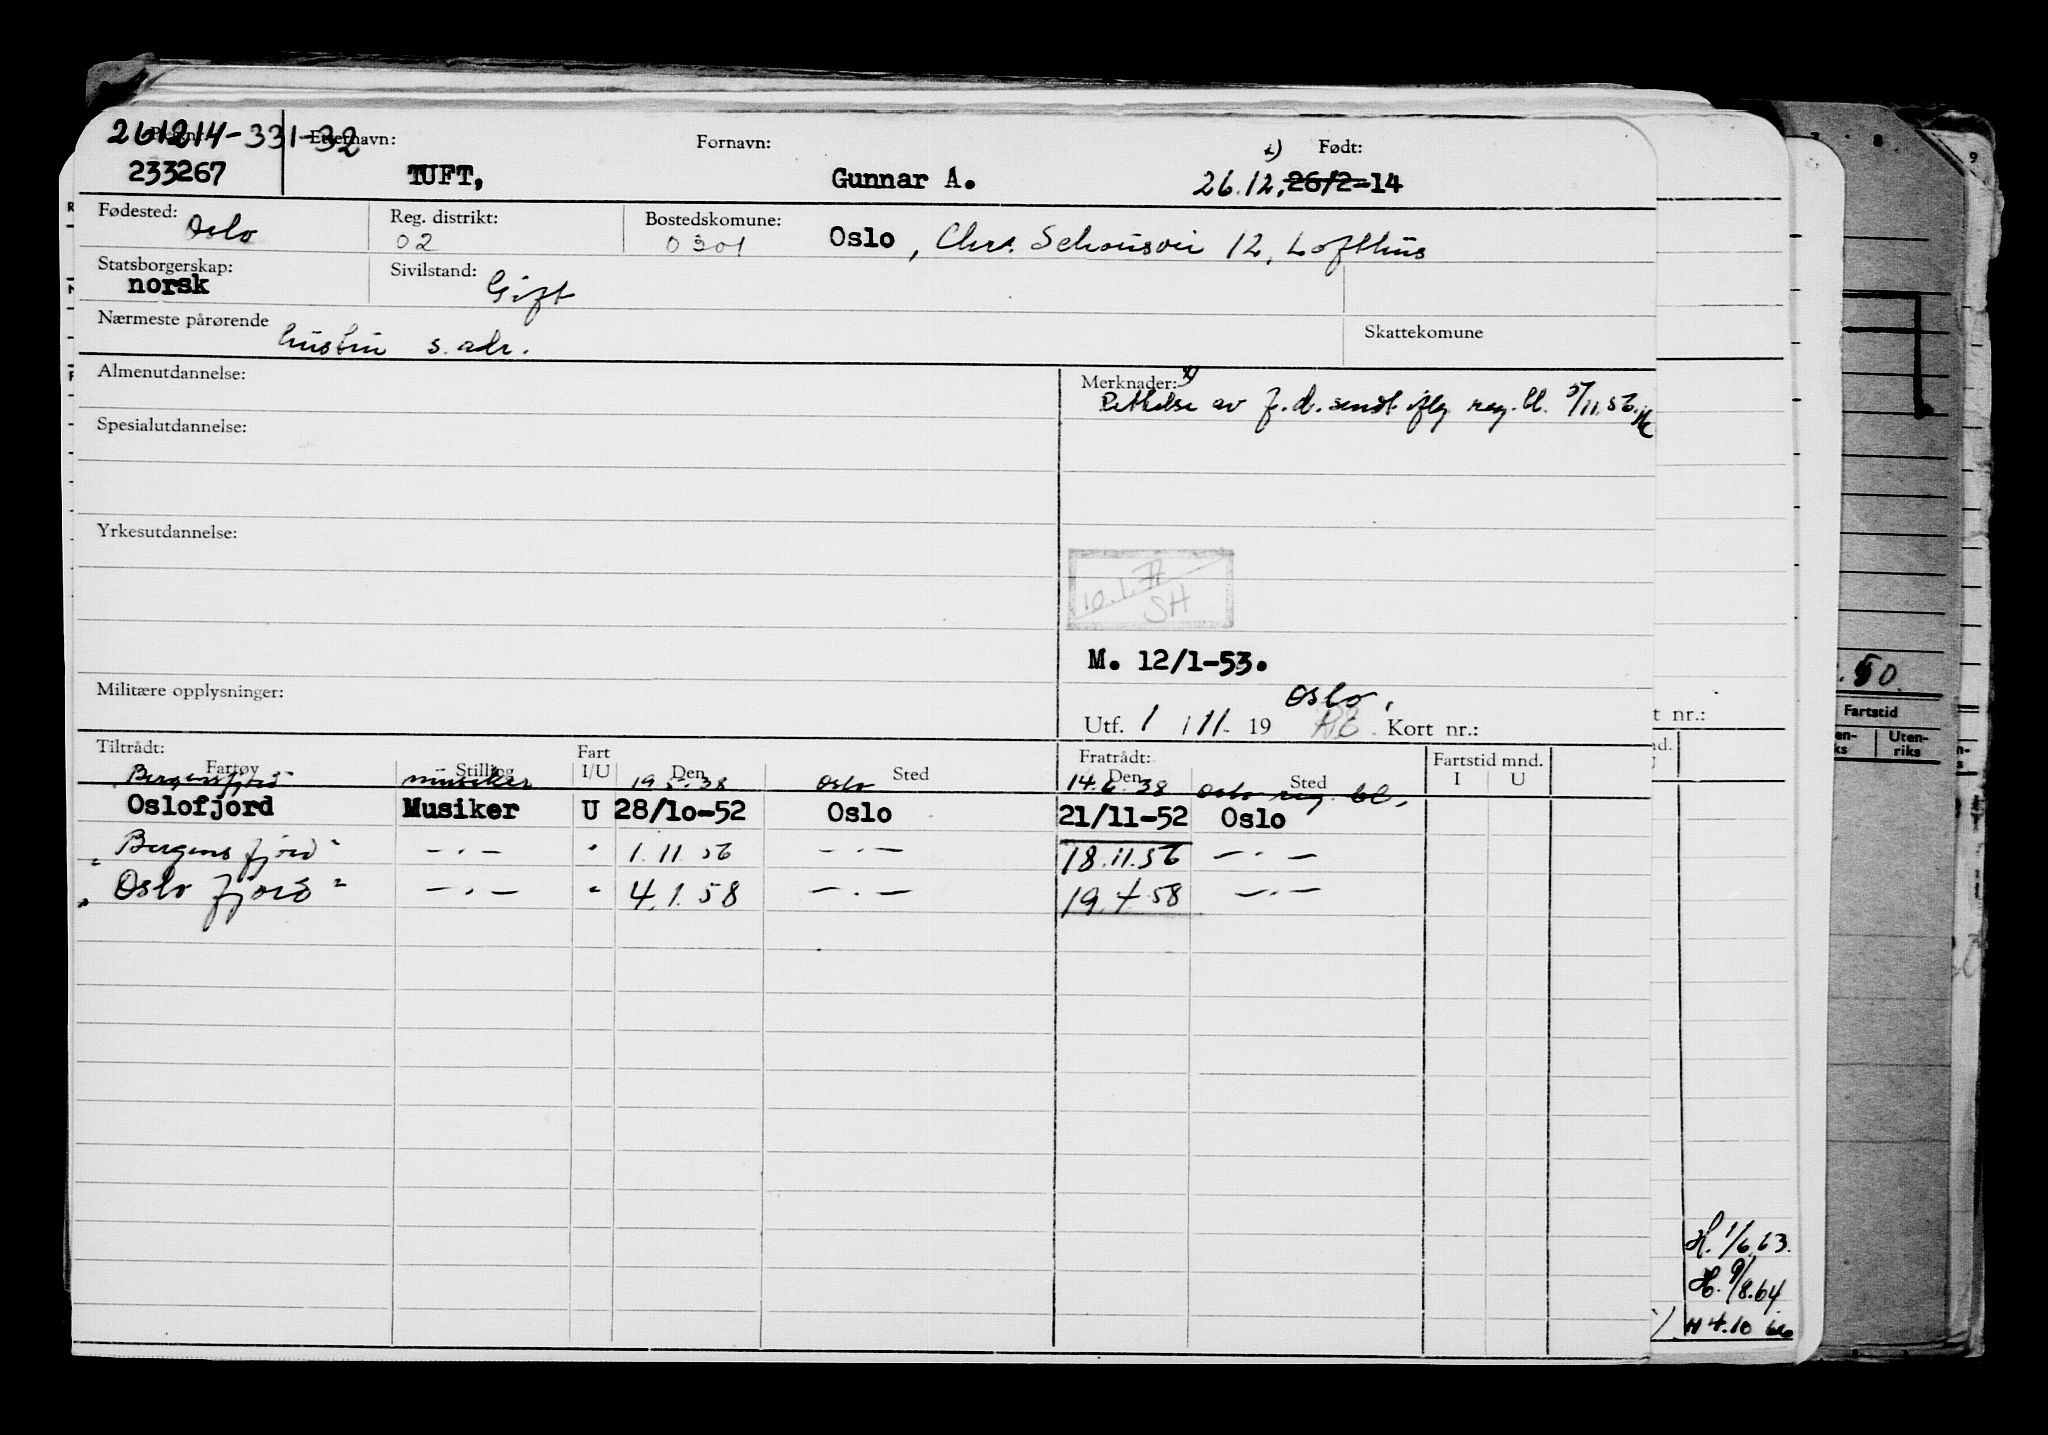 261214-331-32
Reg.nr. Etternavn: Fornavn: x) Født:
233267 TUFT, Gunnar A. 26.12. 26/2-14
Fødested: Oslo Reg. distrikt: 02 Bostedskomune: 0301 Oslo, Chr. Schousvei 12, Lofthus
Statsborgerskap: norsk Sivilstand: Gift
Nærmeste pårørende hustru s. adr. Skattekomune
Almenutdannelse: Merknader: x)
Rettelse av f.d. sendt iflg reg. bl. 5/11.56.
Spesialutdannelse:
Yrkesutdannelse:
10.1.77
SH
M. 12/1-53.
Militære opplysninger: Oslo,
Utf. 1/11-19 Kort nr.:
Tiltrådt: Fart Fratrådt: Fartstid mnd.
Fartøy Stilling I/U Den Sted Den Sted I U
Bergensfjord musiker 19.5.38 Oslo 14.6.38 Oslo reg. bl,
Oslofjord Musiker U 28/10-52 Oslo 21/11-52 Oslo
"Bergensfjord" —.— " 1.11.56 —.— 18.11.56 —.—
"Oslofjord" —.— " 4.1.58 —.— 19.4.58 —.—
t nr.:
.50.
Fartstid
Uten-
riks
H. 1/6.63.
H. 9/8.64
H 4.10 66